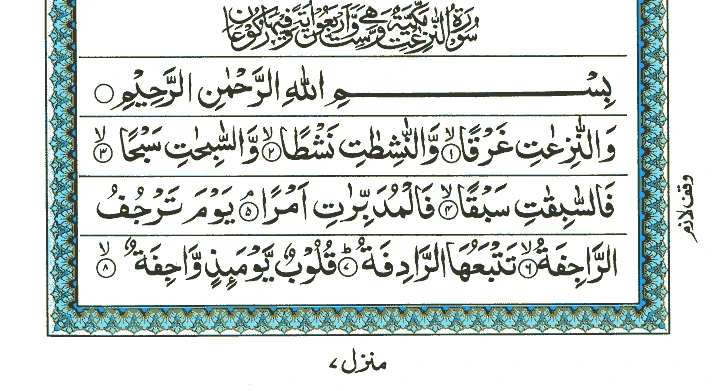 سُوْرَةُ النّٰزِعٰتِ مَكِّيَّةٌ وَّهِيَ سِتٌّ وَّاَرْبَعُوْنَ اٰيَةً وَّفِيْهَا رُكُوْعَانِ
بِسْــــــــمِ اللّٰهِ الرَّحْمٰنِ الرَّحِيْمِ
وَالنّٰزِعٰتِ غَرْقًا ۙ﴿۱﴾ وَّالنّٰشِطٰتِ نَشْطًا ۙ﴿۲﴾ وَّالسّٰبِحٰتِ سَبْحًا ۙ﴿۳﴾
فَالسّٰبِقٰتِ سَبْقًا ۙ﴿۴﴾ فَالْمُدَبِّرٰتِ اَمْرًا ۘ﴿۵﴾ يَوْمَ تَرْجُفُ
الرَّاجِفَةُ ۙ﴿۶﴾ تَتْبَعُهَا الرَّادِفَةُ ؕ﴿۷﴾ قُلُوْبٌ يَّوْمَىِٕذٍ وَّاجِفَةٌ ۙ﴿۸﴾
وقف لازم
منزل ۷